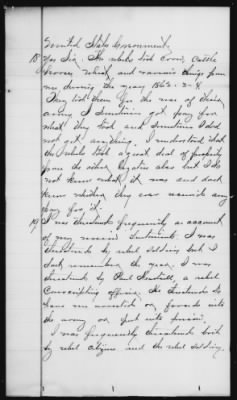 United States Government.
18 Yes Sir. The rebels took Corn, Cattle
horses, wheat, and various things from
me during the years 1862-3-4.
They took them for the use of their
army I sometimes got pay for
what they took and sometimes I did
not get anything. I understood that
the rebels took a great deal of property
from the other also but I do
not know what it was and don't
know whether they ever received any
pay for it.
19 I was threatened frequently on account
of my Union Sentiments. I was
threatened by rebel soldiers but I
don't remember the year. I was
threatened by a rebel
Conscripting officer. He threatened to
have me arrested or forced into
the army or put into prison.
I was frequently threatened both
by rebel citizens and the rebel soldiers.